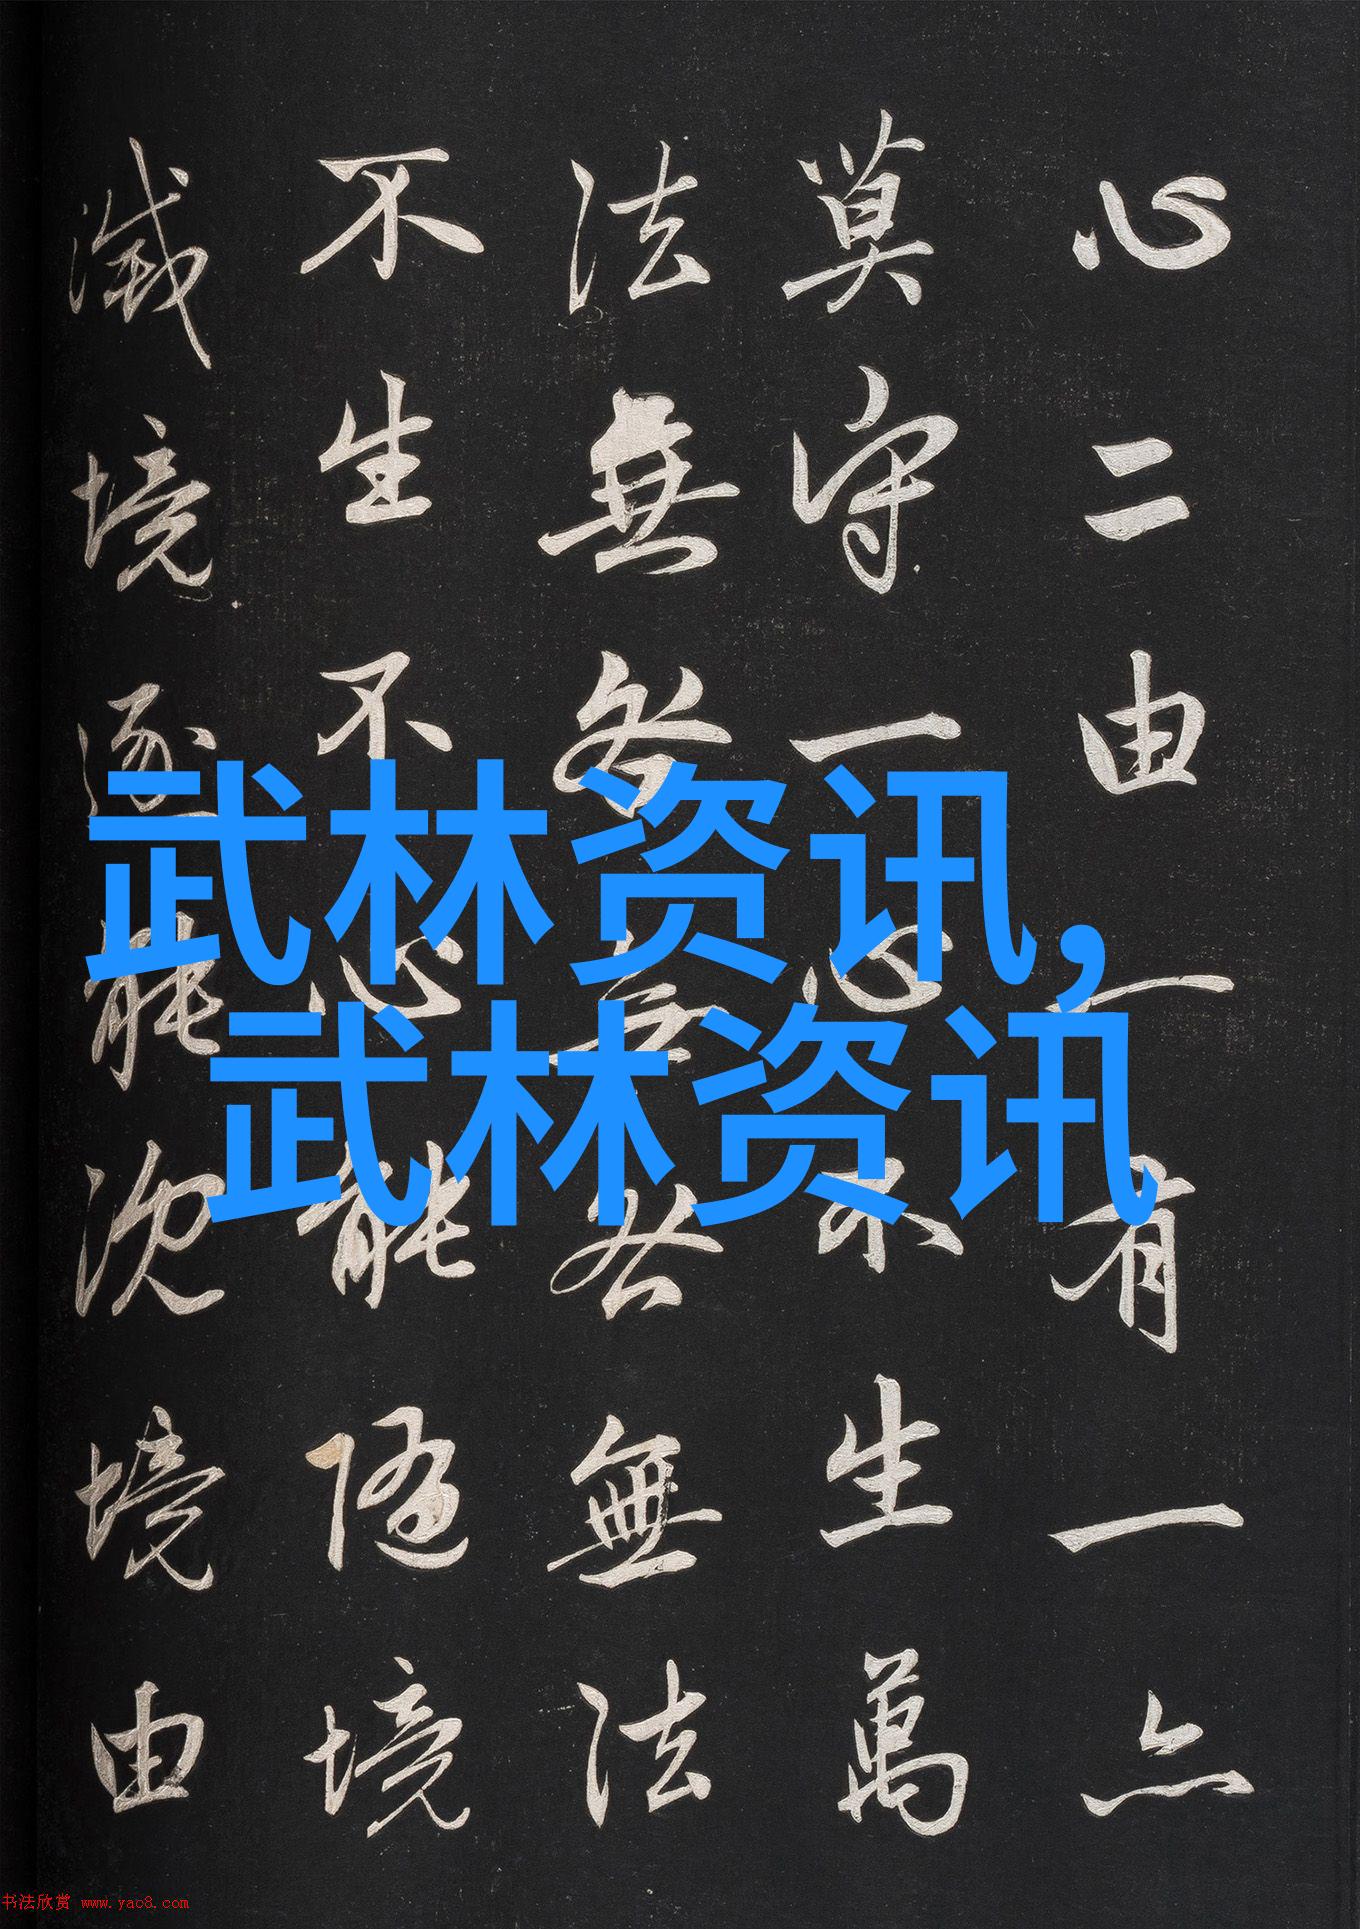 心二由一有一亦
莫守一心不生萬
法無咎無咎無法
不生不心能隨境
滅境逐能沉境由
武林资讯,
武林资讯
书法欣赏 www.yac8.com